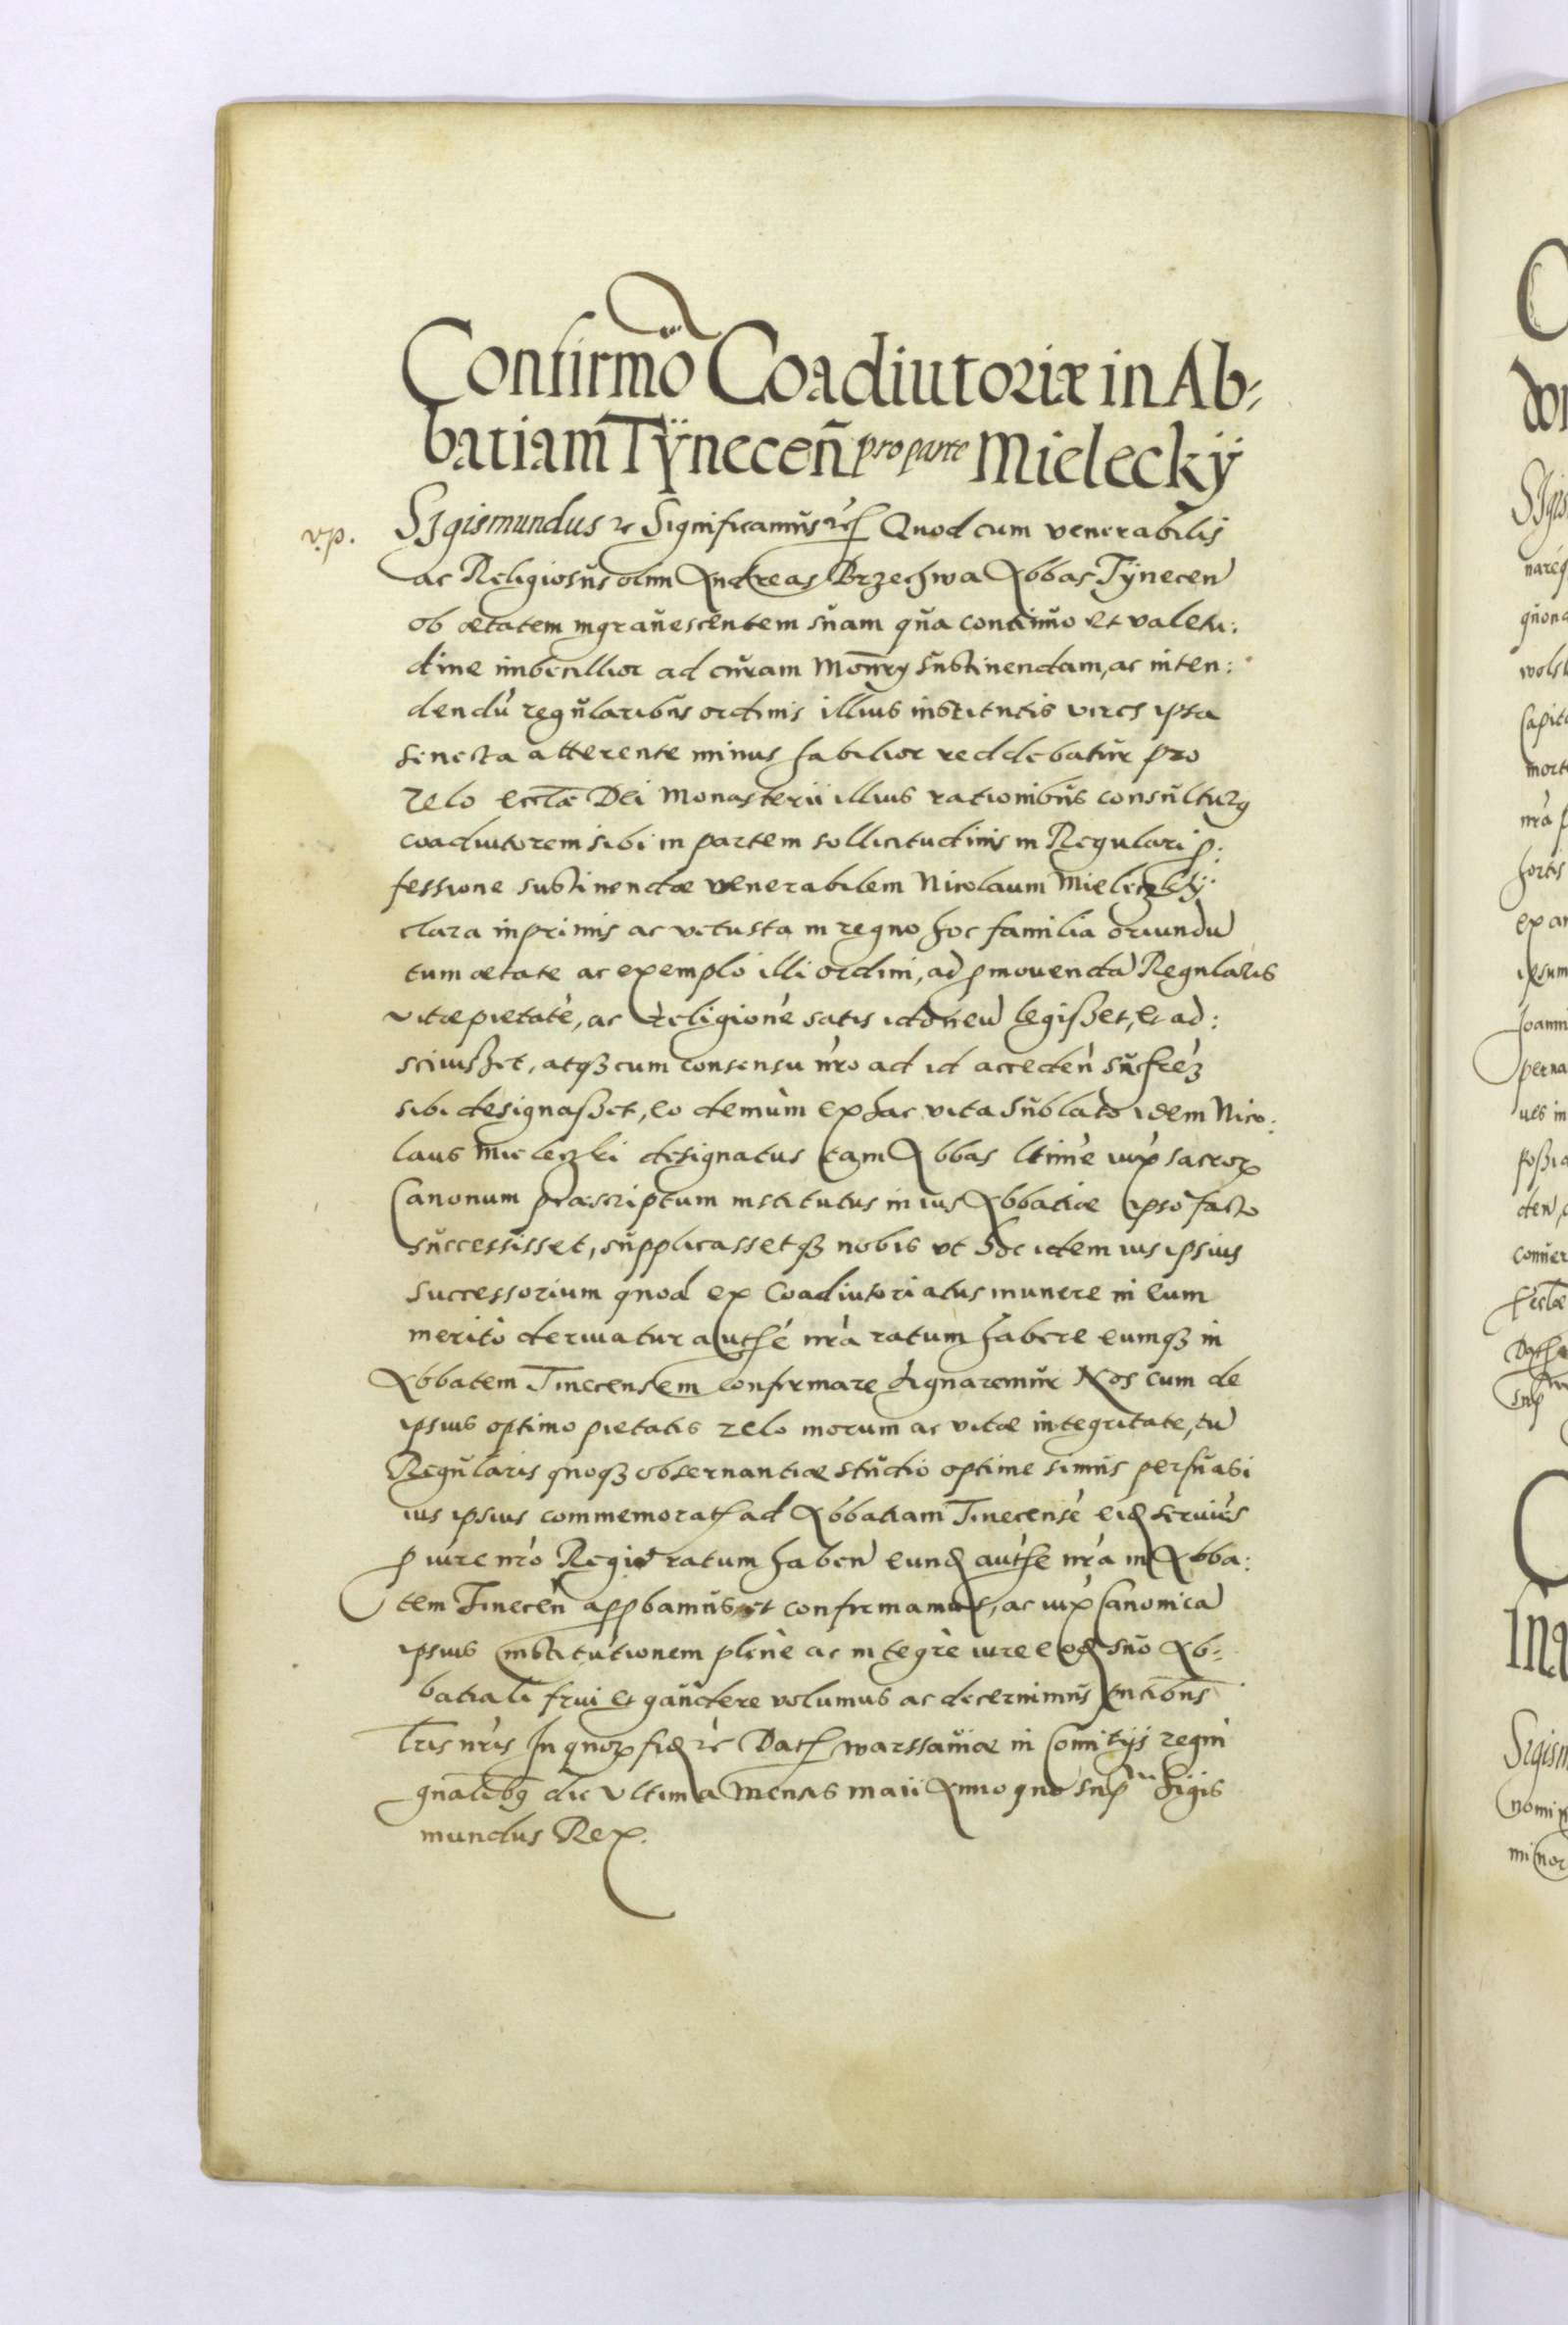 Confirmõ Coadiutoriæ in Ab-
batiam Tÿneceñ pro parte Mieleckÿ
v.p.
Sigismundus etc Significamus etc Quod cum venerabilis
ac Religiosus olim Andreas Brzechwa Abbas Tÿnecen
ob ætatem ingrauescentem suam qua continuo et valetu:
dine imbecillior ad curam Monrÿ sustinendam, ac inten:
dendũ regularibus ordinis illius institutis vires ipsa
senecta atterente minus habilior reddebatur pro
zelo ecclæ Dei Monasterii illius rationibus consulturꝯ
coadiutorem sibi in partem sollicitudinis in Regulari ꝓ:
fessione sustinendæ venerabilem Nicolaum
clara inprimis ac vetusta in regno hoc familia oriundũ
tum ætate ac exemplo illi ordini, ad ꝓmouendã Regularis
vitæ pietatẽ, ac religionẽ satis idoneũ legißet, et ad:
sciuißet, atqꝫ cum consensu nro ad id acceden̄ sucſreꝫ
sibi designaßet, eo demùm ex hac vita sublato idem Nico:
laus Mieleczki designatus tam Abbas ltimè iux̃ sacroꝝ
Canonum præscriptum institutus in ius Abbatiæ ipso facto
successisset, supplicassetqꝫ nobis vt hoc idem ius ipsius
successorium quod ex Coadiutoriatus munere in eum
meritò deriuatur authẽ nrã ratum habere eumqꝫ in
Abbatem Tinecensem confirmare dignaremur Nos cum de
ipsius optimo pietatis zelo morum ac vitæ integritate, tũ
Regularis quoqꝫ obseruantiæ studio optime simus persuasi
ius ipsius commemorat ad Abbatiam Tinecensẽ eid seruiẽs
ꝓ iure nrõ Regio ratum haben̄ eund authẽ nrã in Abba:
tem Tinecen̄ apꝓbamus et confirmamus, ac iux̃ Canonicã
ipsius institutionem plenè ac integrè iure eod suo Ab-
batiali frui et gaudere volumus ac decernimus ṽntibus
lris nris In quoꝝ fid etc Dat Warssauiæ in Comitijs regni
gnalibꝯ die Vltima Mensis Maii Anno quo supra Sigis
mundus Rex.